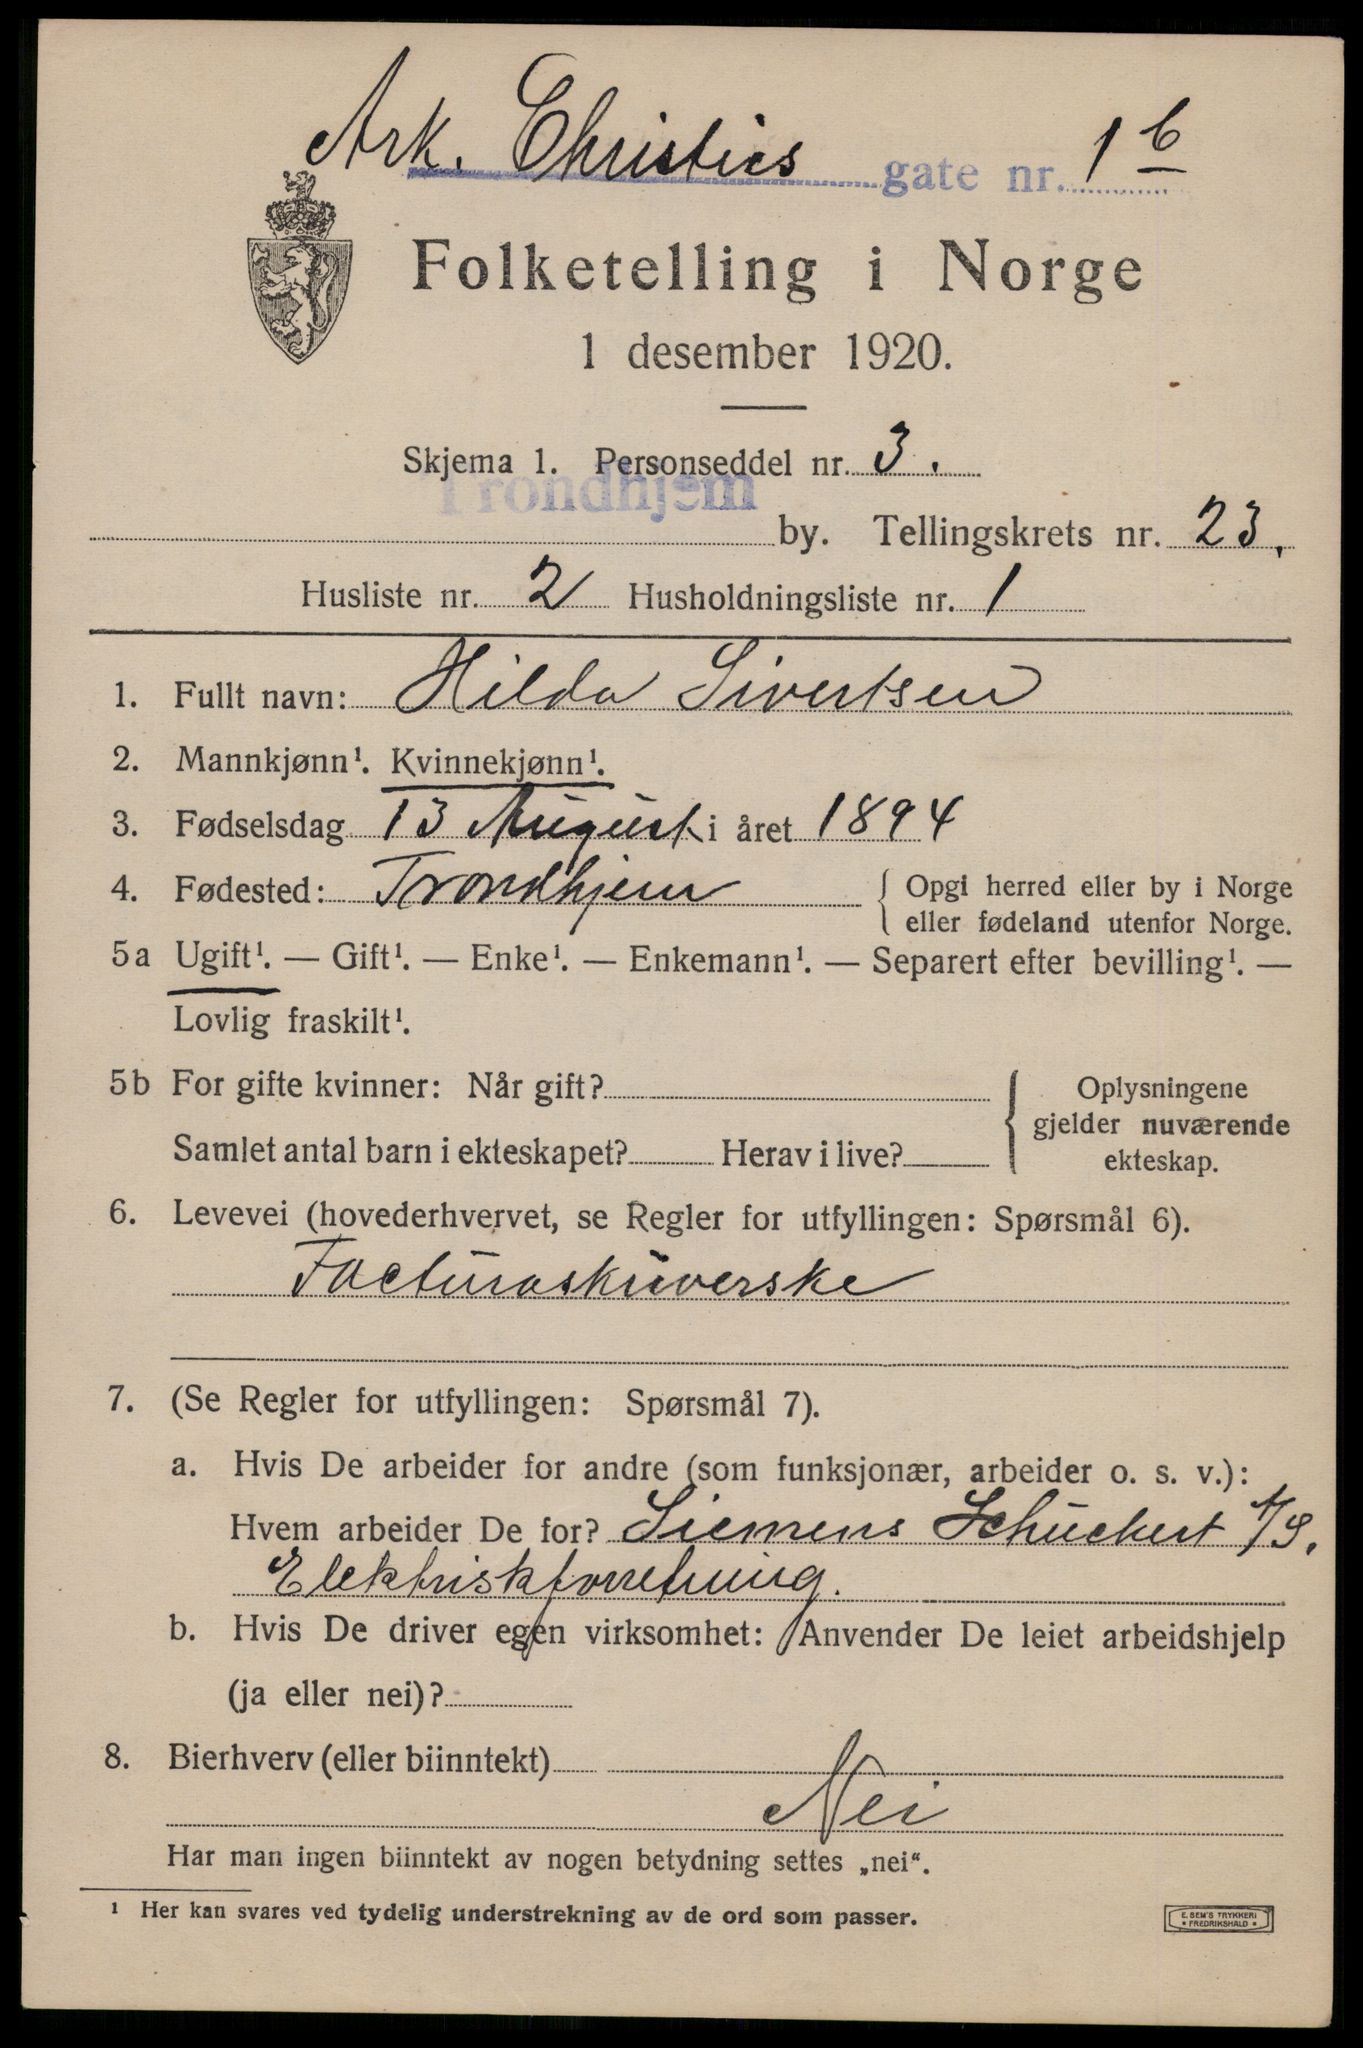 Ark. Christies gate nr. 1b
Folketelling i Norge
1 desember 1920.
Skjema 1. Personseddel nr. 3.
Trondhjem by. Tellingskrets nr. 23.
Husliste nr. 2 Husholdningsliste nr. 1
1. Fullt navn: Hilda Sivertsen
2. Mannkjønn¹. Kvinnekjønn¹.
3. Fødselsdag 13 August i året 1894
4. Fødested: Trondhjem { Opgi herred eller by i Norge
eller fødeland utenfor Norge.
5a Ugift¹. — Gift¹. — Enke¹. — Enkemann¹. — Separert efter bevilling¹. —
Lovlig fraskilt¹.
5b For gifte kvinner: Når gift? { Oplysningene
gjelder nuværende
Samlet antal barn i ekteskapet? Herav i live? ekteskap.
6. Levevei (hovederhvervet, se Regler for utfyllingen: Spørsmål 6).
Facturaskriverske
7. (Se Regler for utfyllingen: Spørsmål 7).
a. Hvis De arbeider for andre (som funksjonær, arbeider o. s. v.):
Hvem arbeider De for? Siemens Schuckert A/S.
Elektriskforretning.
b. Hvis De driver egen virksomhet: Anvender De leiet arbeidshjelp
(ja eller nei)?
8. Bierhverv (eller biinntekt)
Nei
Har man ingen biinntekt av nogen betydning settes „nei“.
¹ Her kan svares ved tydelig understrekning av de ord som passer.
E. SEM'S TRYKKERI
* FREDRIKSHALD *